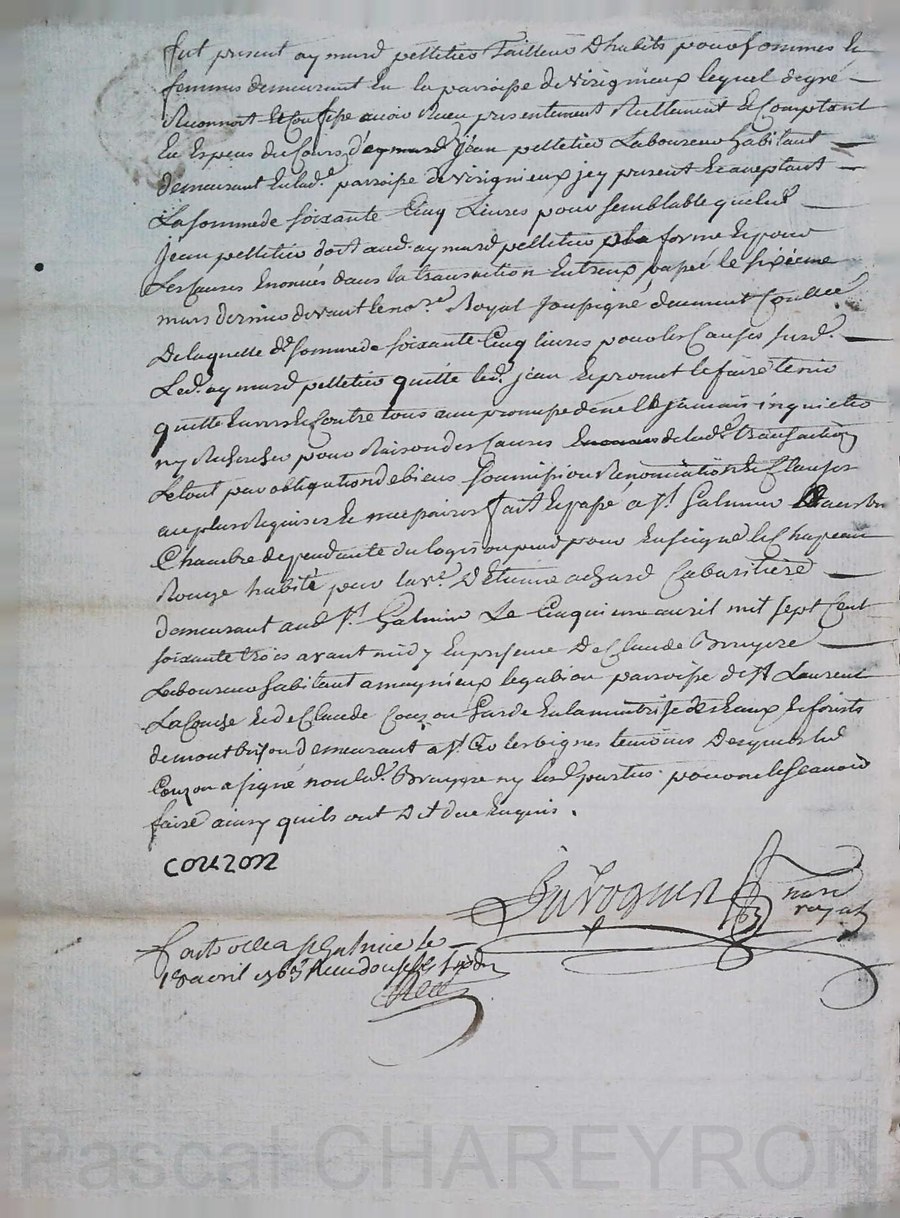 fut present aymard pelletier Tailleur Dhabits pour hommes &
femmes demeurant En la parroisse de virignieux lequel degré
Reconnoit Et Confesse avoir Reçu presentement Reellement Et Comptant
En Especes du Cours d'aymard jean pelletier Laboureur habitant
demeurant Enlad.e parroisse de virignieux jcy present Et acceptant
La somme de soixante Cinq Livres pour semblable queled.
jean pelletier doit aud. aymard pelletier forme Et pour
Les Causes Enoncées dans la transaction Entreux passée le sixieme
mars dernier devant le no.re Royal soussigné duement Conllée
De laquelle d.e somme de soixante Cinq livres pour les Causes susd.
Led. aymard pelletier quitte led. jean Et promet le faire tenir
quitte Envers Et Contre tous avec promesse de ne le jamais inquieter
ny Rechercher pour Raison des Causes de lad.e transaction
Le tout par obligation de biens soumission Renonciation Et Clauses
au plus Requises Et necessaires fait Et passé a St. Galmier Dans un
Chambre deppendante du logis ou pend pour Enseigne le Chapeau
Rouge habité par la v.e D'Etienne achard Cabaretiere
demeurant aud. St. Galmier Le Cinquieme avril mil sept Cent
soixante trois avant midy En presence De Claude Bruyere
Laboureur habitant a maynieux legabion parroisse de St Laurent
La Conche Et de Claude Couzon Garde En la maitrise des Eaux Et forests
de montbrison demeurant a St. les vignes temoins Desquels led.
Couzon a signé non led. Bruyere ny lesd. parties pour ne le scavoir
faire ainsy quils ont Dit de ce Enquis.
couzon
nore
royal
Controllé a St Galmier le
18 avril 1763 Reçu douze s.